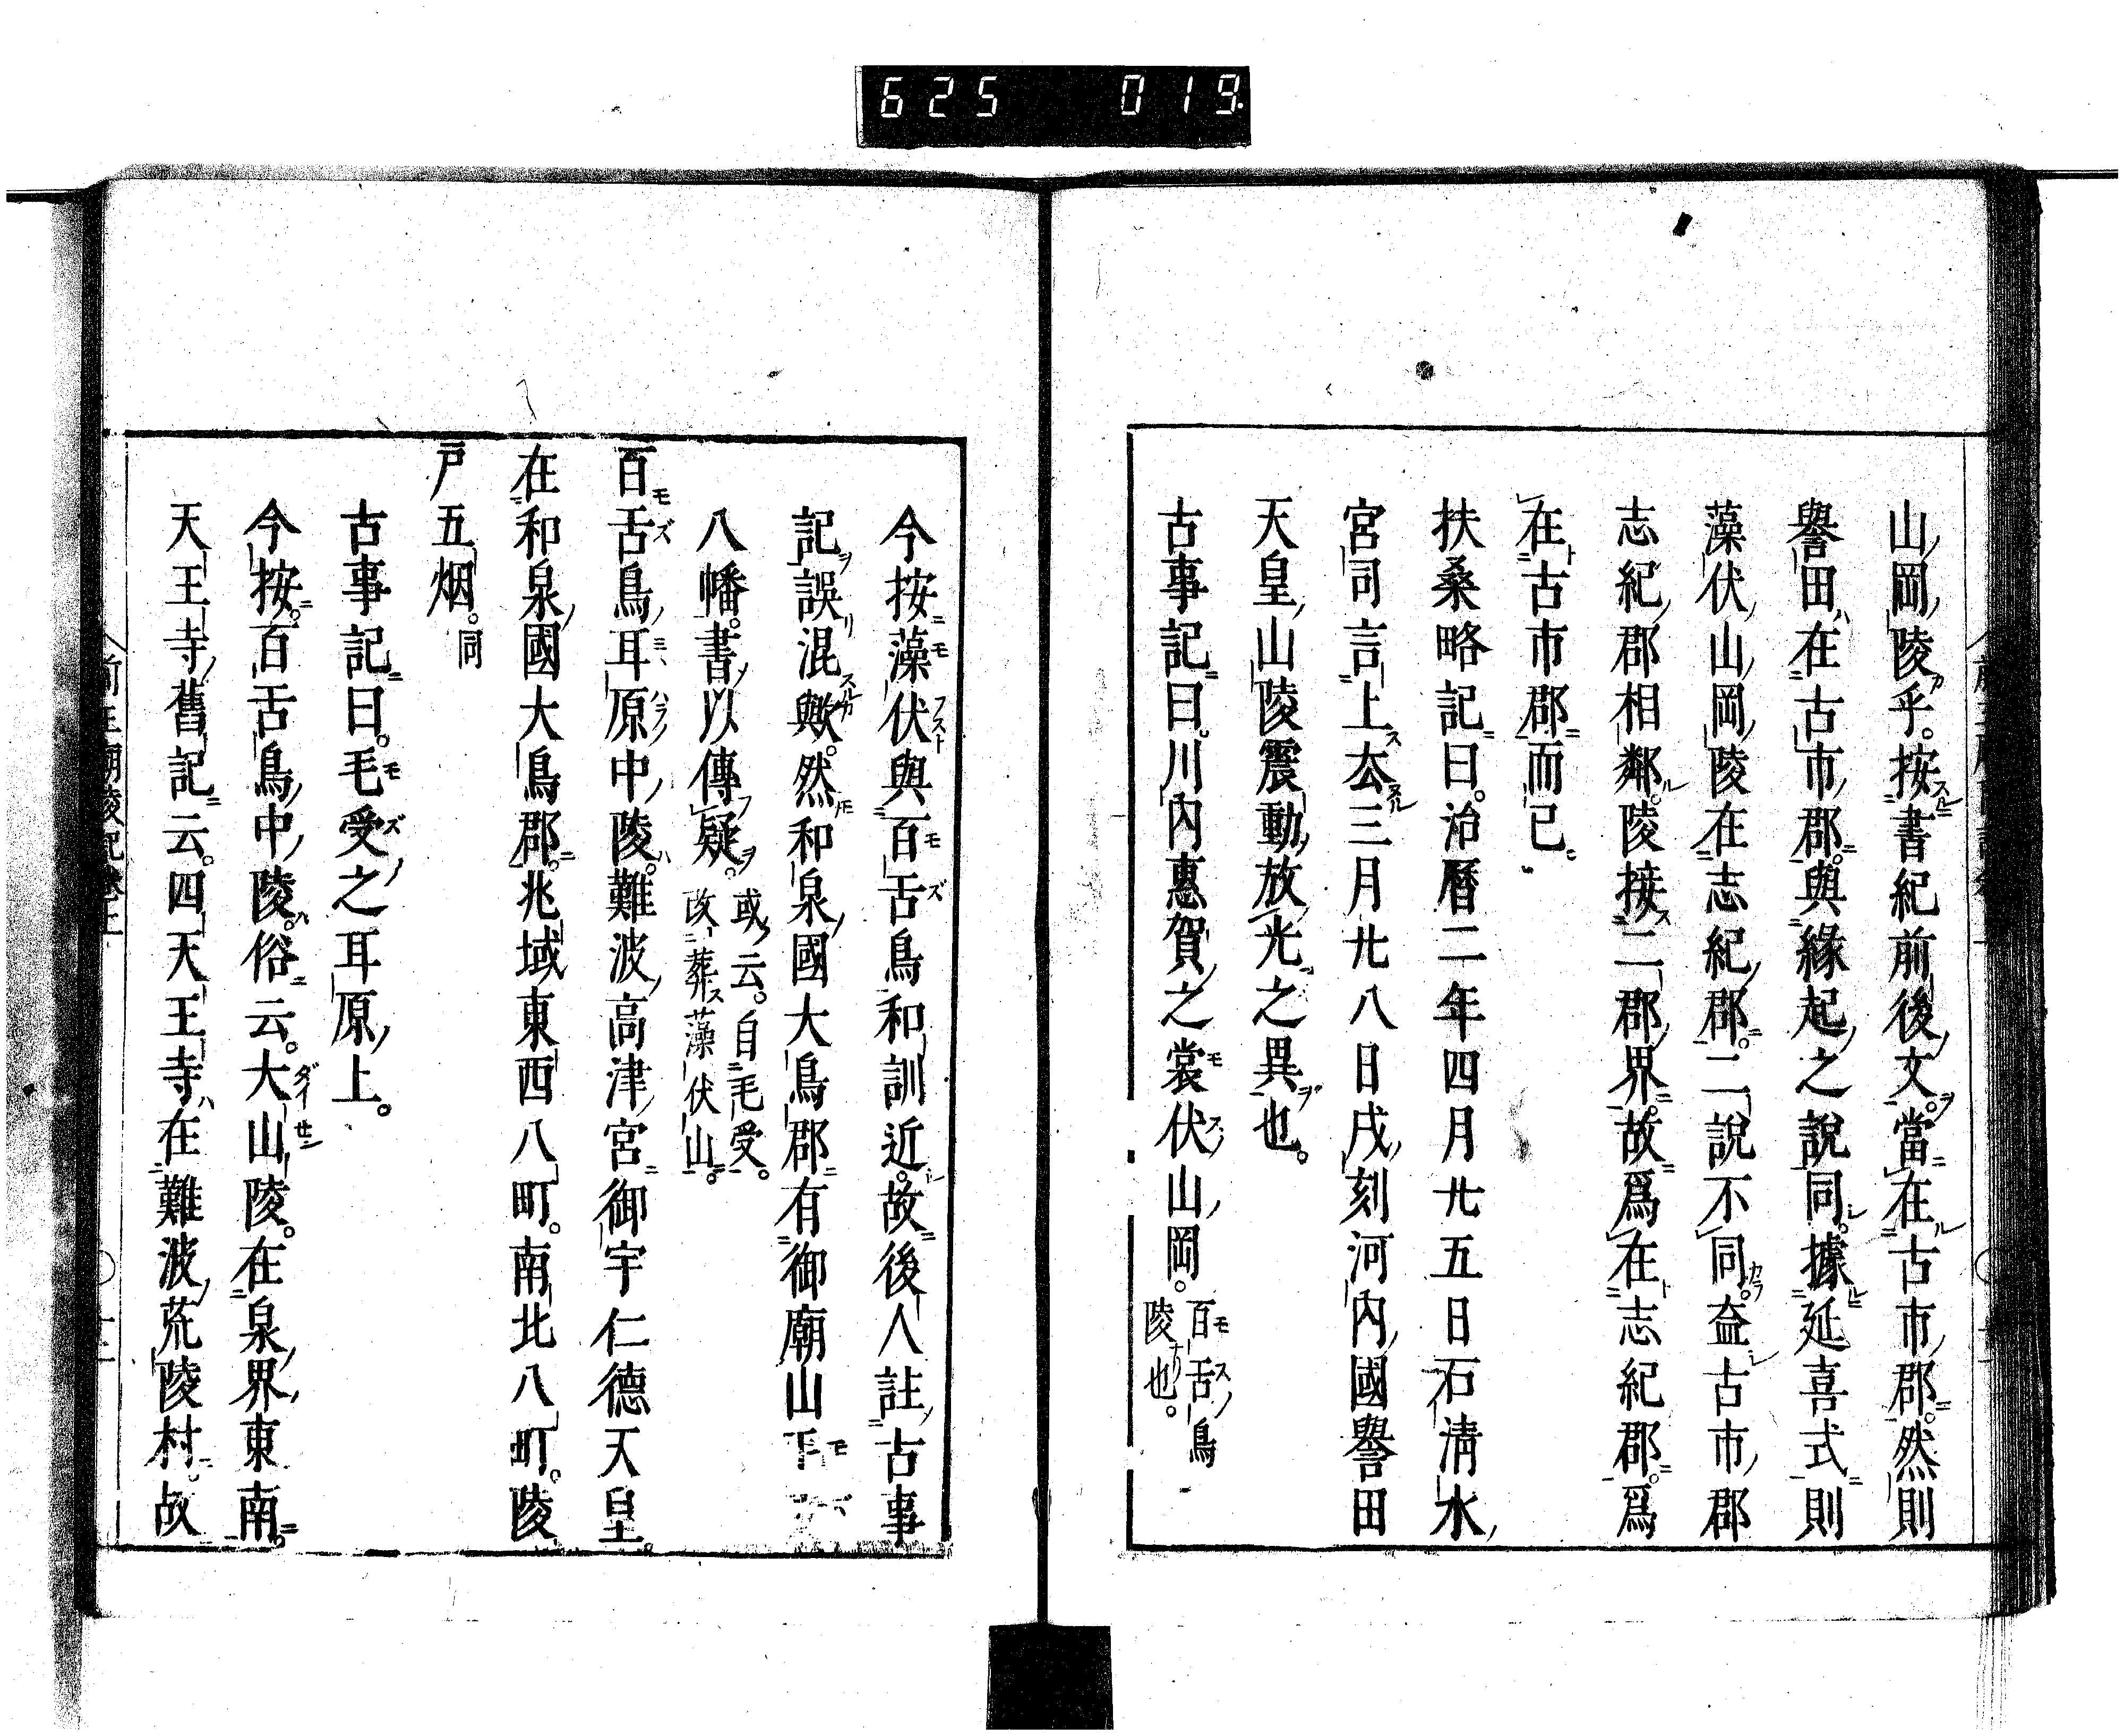 625 019
山岡陵乎。按書紀前後文。當在古市郡。然則
譽田在古市郡。與緣起之說同。據延喜式則
藻伏山岡陵在志紀郡。二說不同。益古市郡
志紀郡相鄰。陵接二郡界。故爲在志紀郡。爲
在古市郡而已。
扶桑略記曰。治曆二年四月廿五日石淸水
宮司言上去三月廿八日戌刻河內國譽田
天皇山陵震動放光之異也。
古事記曰。川內惠賀之裳伏山岡。百舌鳥陵也。
今按藻伏與百舌鳥和訓近。故後人註古事
記誤混歟。然和泉國大鳥郡有御廟山
八幡。書以傳疑。或云。自毛受。改葬藻伏山。
百舌鳥耳原中陵。難波高津宮御宇仁德天皇。
在和泉國大鳥郡。兆域東西八町。南北八町。陵
戸五烟。同
古事記曰。毛受之耳原上。
今按。百舌鳥中陵。俗云。大山陵。在泉界東南。
天王寺舊記云。四天王寺在難波荒陵村。故
前王廟陵記卷上